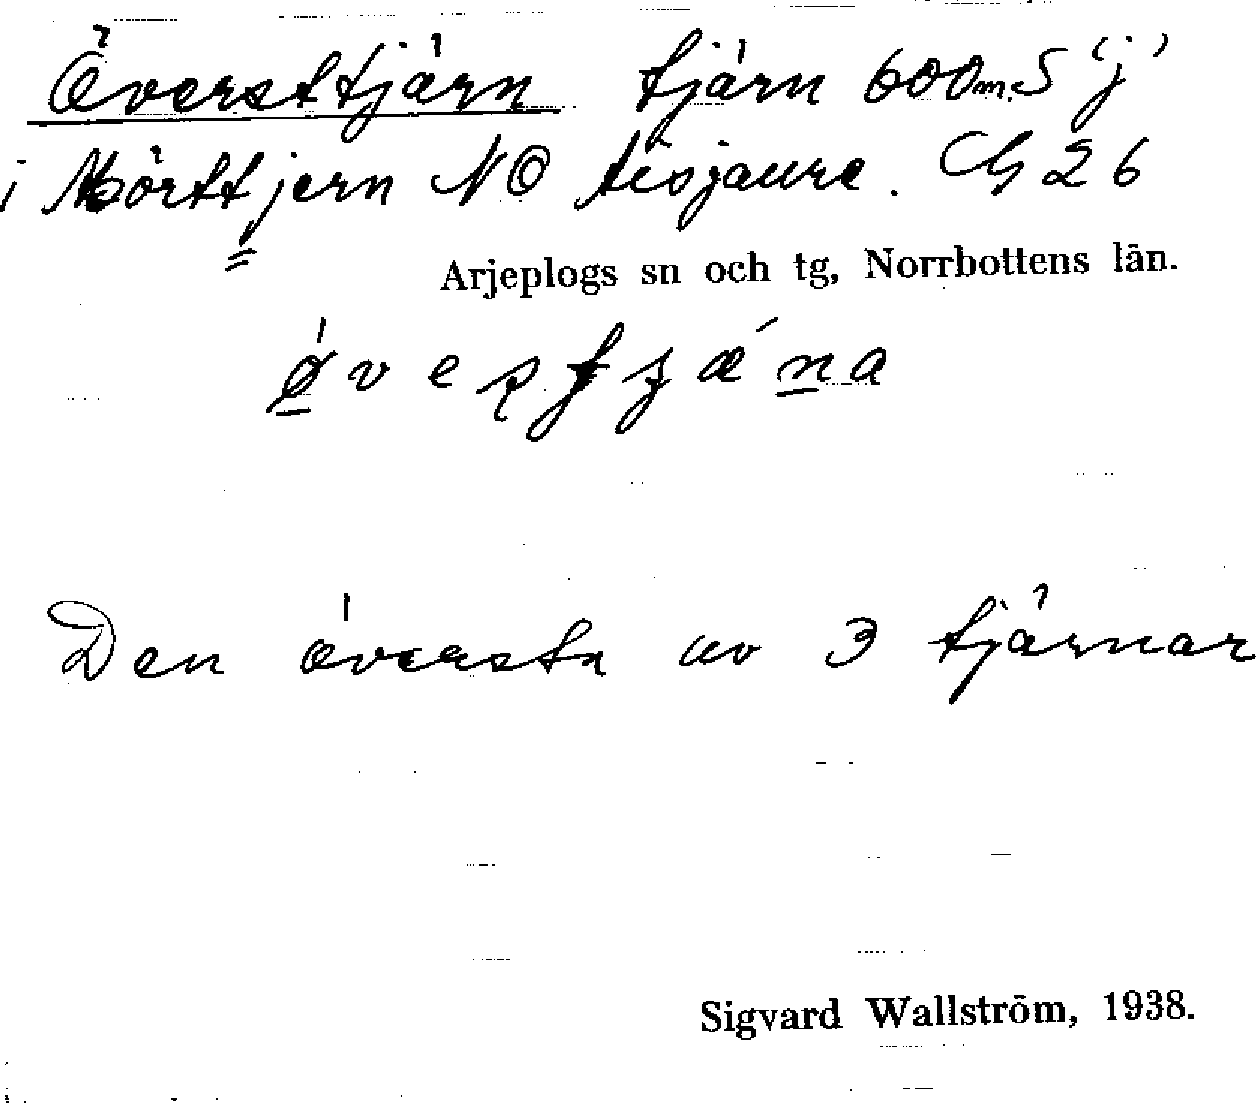 Översttjärn tjärn 600 m. S 'j'
i Mörttjern NO Aisjaure. G 26
Arjeplogs sn och tg, Norrbottens län.
Den översta av 3 tjärnar
Sigvard Wallström, 1938.